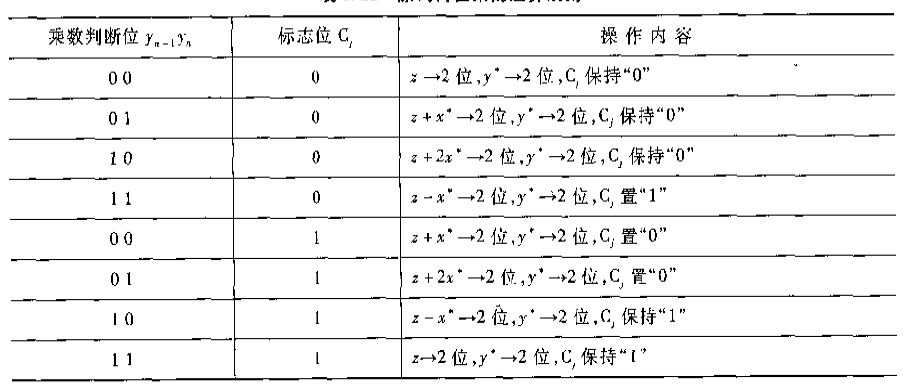 乘数判断位 yₙ₋₁yₙ 标志位 Cⱼ 操作内容
0 0 0 z→2位,y*→2位,Cⱼ保持“0”
0 1 0 z+x*→2位,y*→2位,Cⱼ保持“0”
1 0 0 z+2x*→2位,y*→2位,Cⱼ保持“0”
1 1 0 z-x*→2位,y*→2位,Cⱼ置“1”
0 0 1 z+x*→2位,y*→2位,Cⱼ置“0”
0 1 1 z+2x*→2位,y*→2位,Cⱼ置“0”
1 0 1 z-x*→2位,y*→2位,Cⱼ保持“1”
1 1 1 z→2位,y*→2位,Cⱼ保持“1”